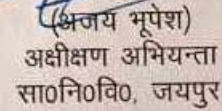 (अजय भूपेश)
अक्षीक्षण अभियन्ता
सा०नि०वि०, जयपुर